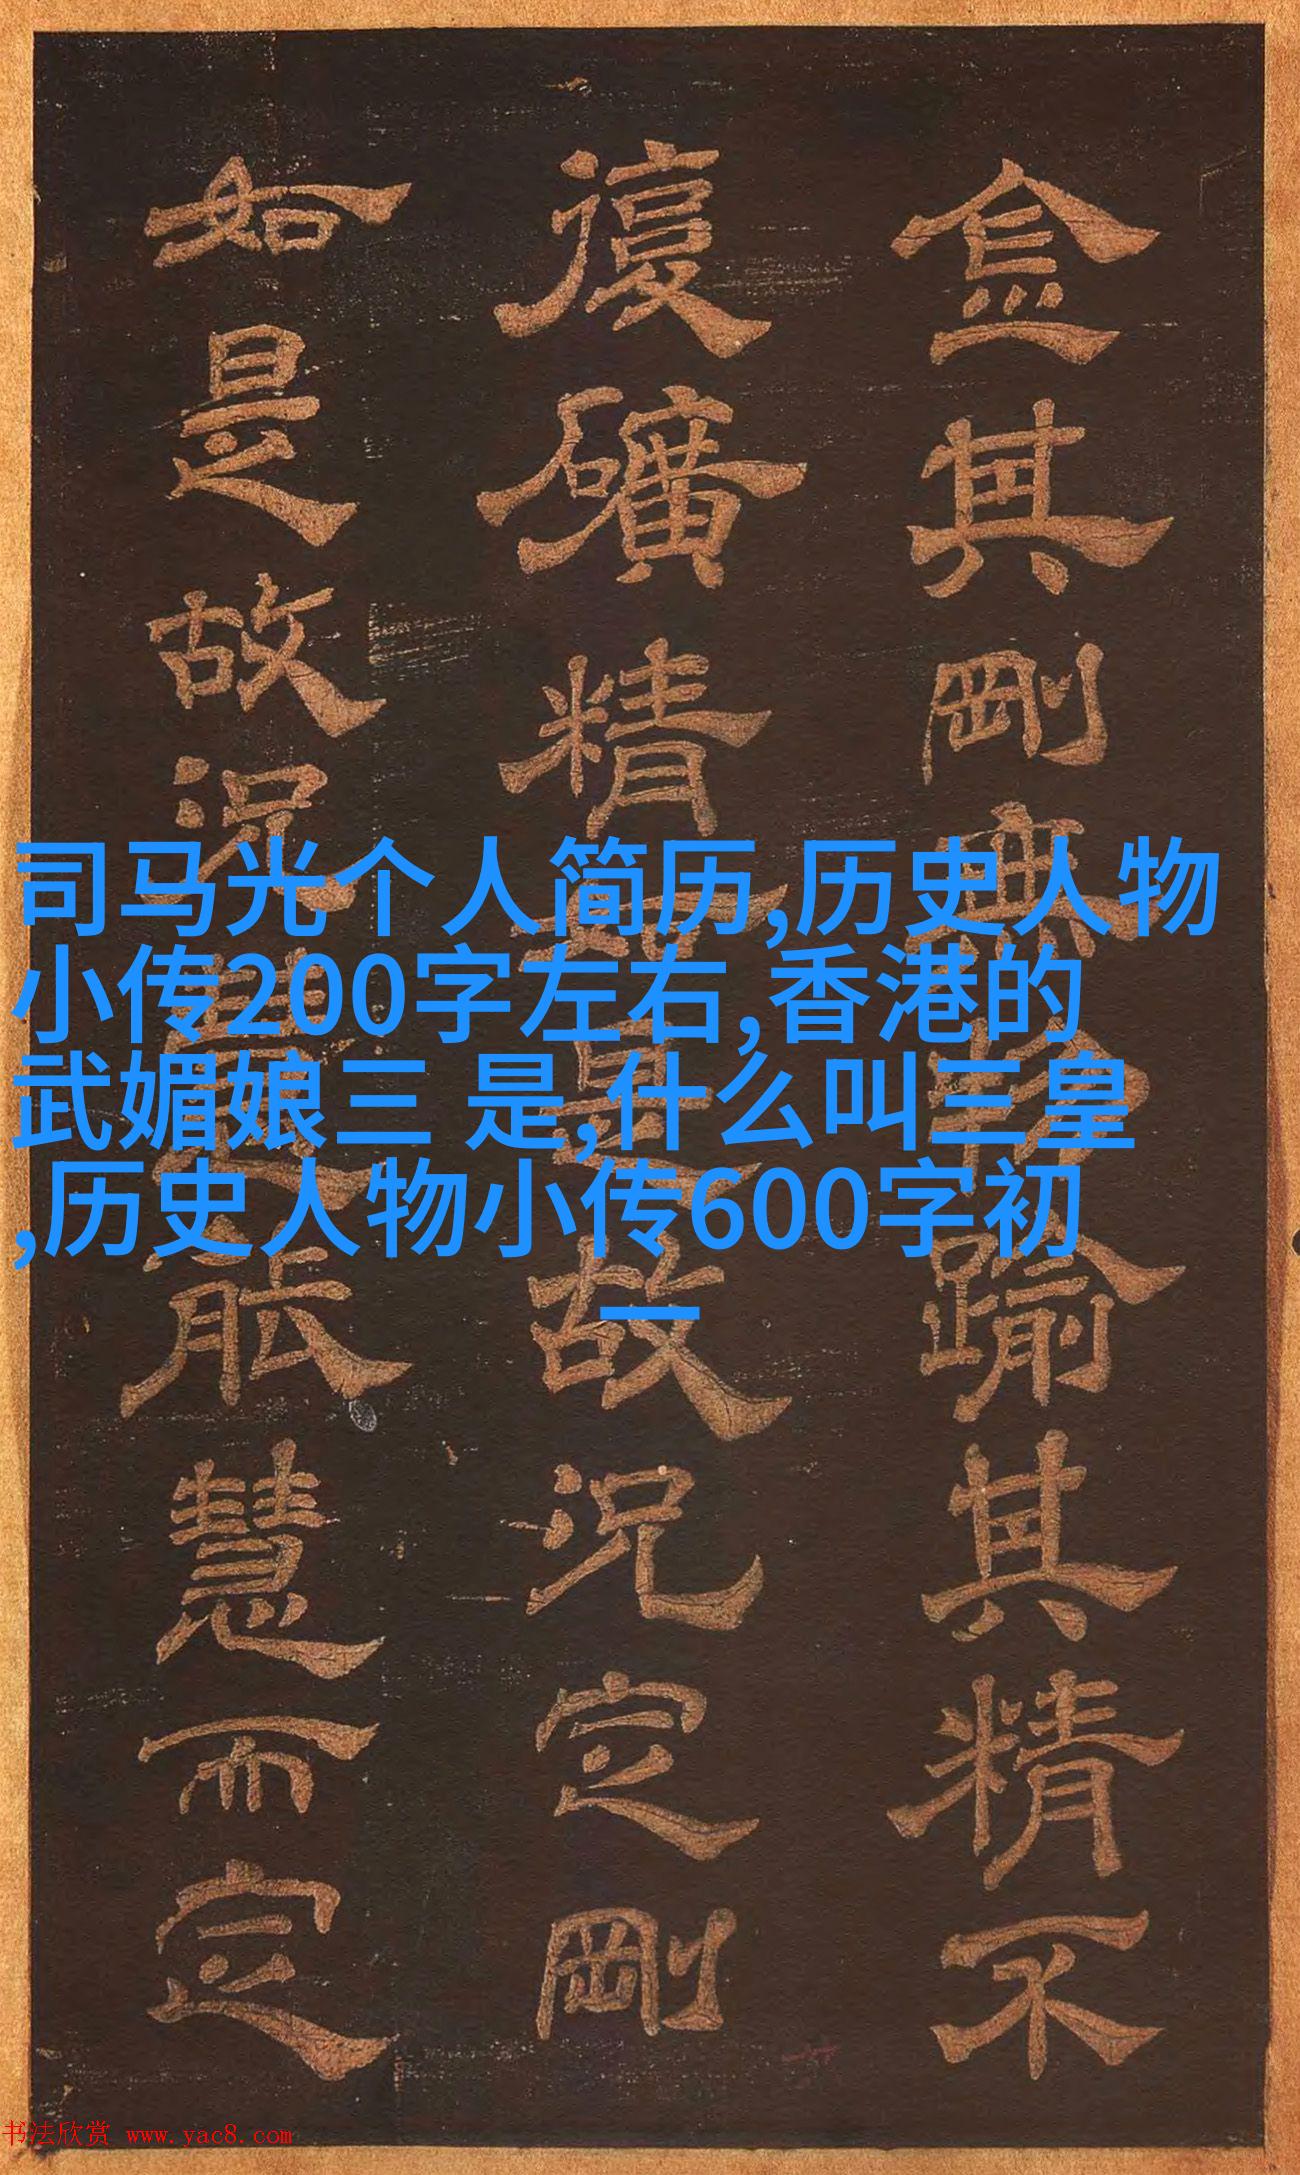 金其剛無踰其精不
復礦精是故況定剛
如是故況能慧而定
司马光个人简历,历史人物
小传200字左右,香港的
武媚娘三 是,什么叫三皇
,历史人物小传600字初
一
书法欣赏 www.yac8.com